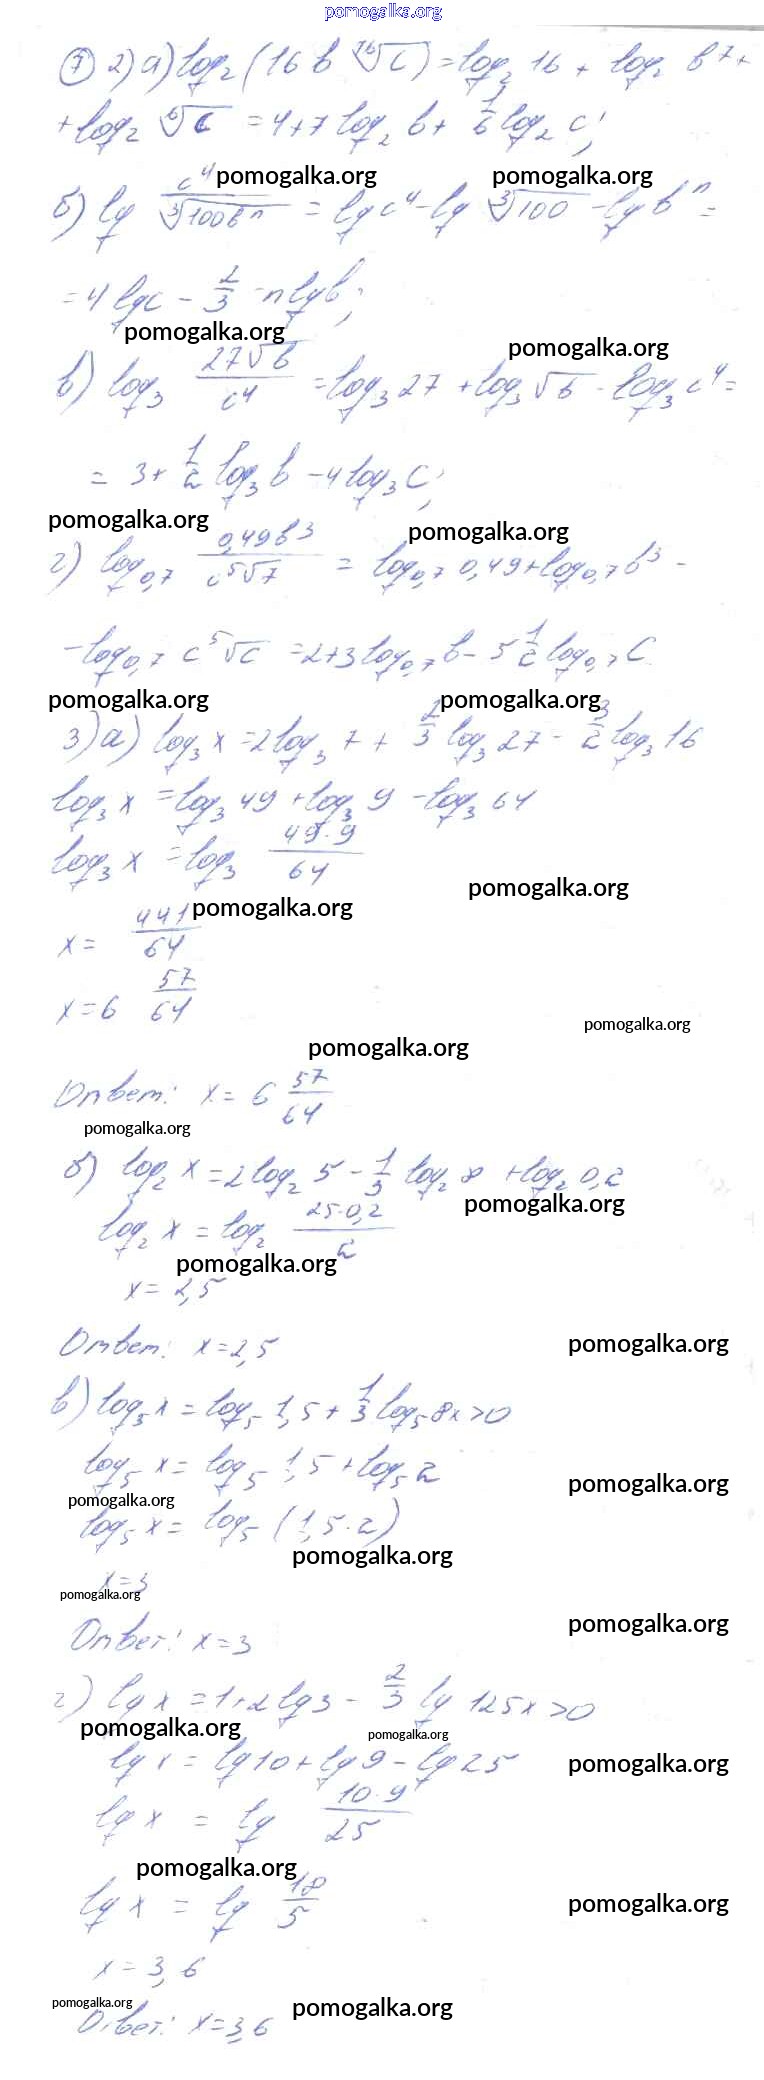 pomogalka.org
7) 2) а) log₂ (16 b ⁷⁶√c) = log₂ 16 + log₂ b⁷ +
+ log₂ ⁶√c = 4 + 7 log₂ b + 1/6 log₂ c;
pomogalka.org pomogalka.org
б) lg c⁴/∛(100bⁿ) = lg c⁴ - lg ∛100 - lg bⁿ =
= 4 lg c - 2/3 - n lg b;
pomogalka.org pomogalka.org
в) log₃ 27√b/c⁴ = log₃ 27 + log₃ √b - log₃ c⁴ =
= 3 + 1/2 log₃ b - 4 log₃ c;
pomogalka.org pomogalka.org
г) log₀,₇ 0,49b³/c⁵√7 = log₀,₇ 0,49 + log₀,₇ b³ -
- log₀,₇ c⁵√c = 2 + 3 log₀,₇ b - 5 1/2 log₀,₇ c
pomogalka.org pomogalka.org
3) а) log₃ x = 2 log₃ 7 + 2/3 log₃ 27 - 3/2 log₃ 16
log₃ x = log₃ 49 + log₃ 9 - log₃ 64
log₃ x = log₃ 49·9/64
pomogalka.org
pomogalka.org
x = 441/64
x = 6 57/64
pomogalka.org
pomogalka.org
Ответ: x = 6 57/64
pomogalka.org
б) log₂ x = 2 log₂ 5 - 1/3 log₂ 8 + log₂ 0,2
pomogalka.org
log₂ x = log₂ 25·0,2/2
pomogalka.org
x = 2,5
Ответ: x = 2,5
pomogalka.org
в) log₅ x = log₅ 1,5 + 1/3 log₅ 8 x>0
log₅ x = log₅ 1,5 + log₅ 2
pomogalka.org
pomogalka.org
log₅ x = log₅ (1,5·2)
pomogalka.org
x = 3
pomogalka.org
pomogalka.org
Ответ: x = 3
г) lg x = 1 + 2 lg 3 - 2/3 lg 125 x>0
pomogalka.org pomogalka.org
lg x = lg 10 + lg 9 - lg 25
pomogalka.org
lg x = lg 10·9/25
pomogalka.org
lg x = lg 18/5
pomogalka.org
x = 3,6
pomogalka.org pomogalka.org
Ответ: x = 3,6